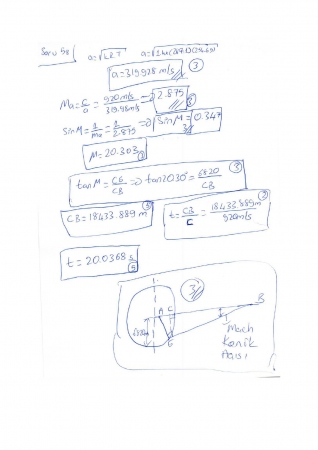 Soru 5)
a=√kRT a=√1.4x(287)x(254.69)
a=319928 m/s (3)
Ma=c/a=920m/s/319.98m/s=>2.875
sinM=1/ma=1/2.875=>sinM=0.347
M=20.303
tanM=CG/CB=>tan20.30=6820/CB (3)
CB=18433.889m (5) t=CB/C=18433.889m/920m/s
t=20.0368s (5)
(3)
A C B
G
Mach
Konik
Açısı